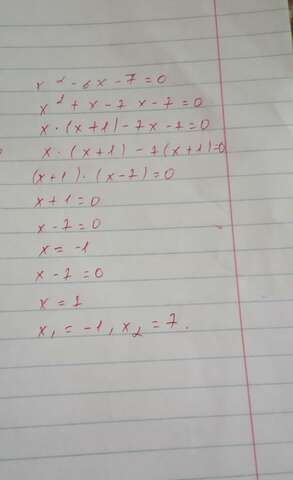 x² - 6x - 7 = 0
x² + x - 7x - 7 = 0
x · (x + 1) - 7x - 7 = 0
x · (x + 1) - 7(x + 1) = 0
(x + 1) · (x - 7) = 0
x + 1 = 0
x - 7 = 0
x = -1
x - 7 = 0
x = 7
x₁ = -1, x₂ = 7.